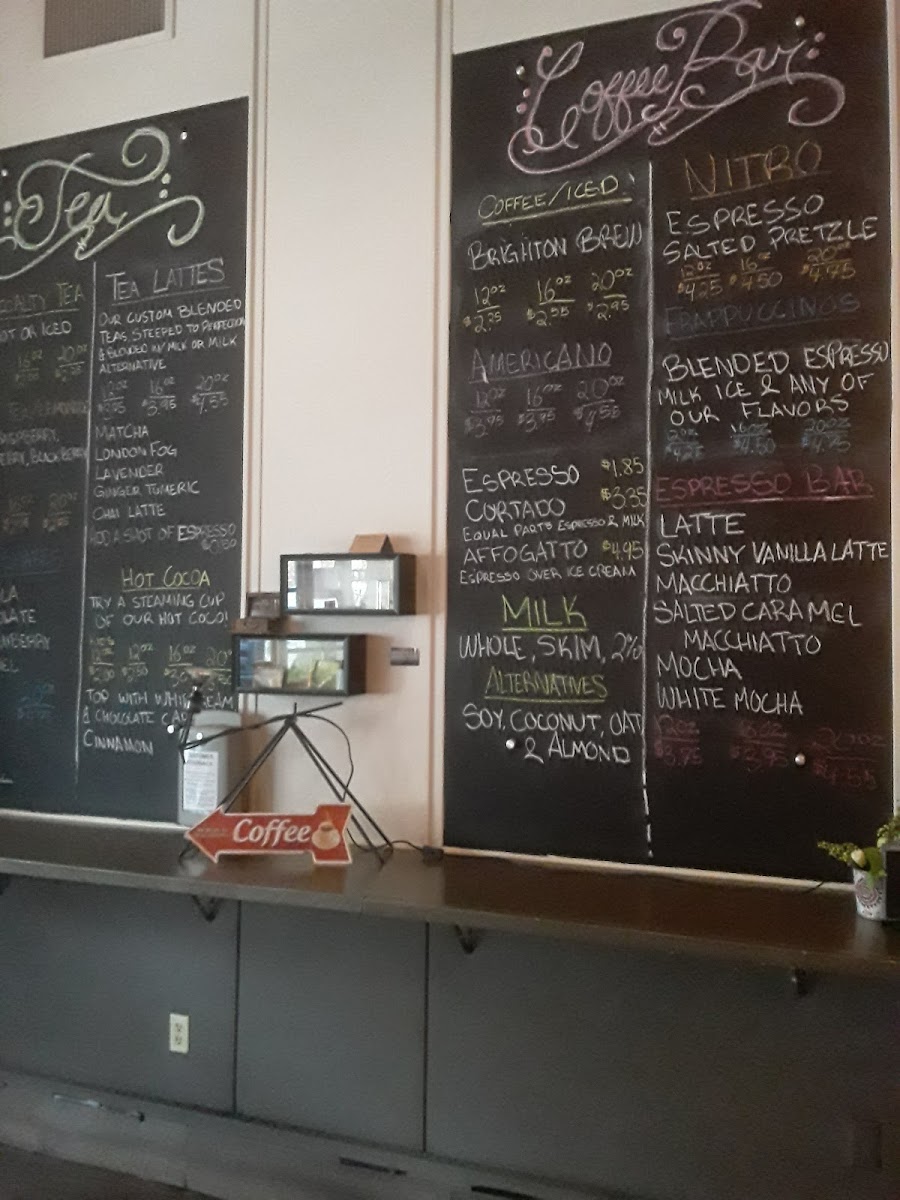 Tea
TEA
OT OR ICED
16oz 20oz
RASPBERRY,
BLACKBERRY
16oz 20oz
TEA LATTES
OUR CUSTOM BLENDED
TEAS, STEEPED TO PERFECTION
& BLENDED W/ MILK OR MILK
ALTERNATIVE
12oz 16oz 20oz
$3.95 $4.55
MATCHA
LONDON FOG
LAVENDER
GINGER TUMERIC
CHAI LATTE
ADD A SHOT OF ESPRESSO
HOT COCOA
TRY A STEAMING CUP
OF OUR HOT COCO!
12oz 16oz 20oz
TOP WITH
& CHOCOLATE
CINNAMON
Coffee
Coffee Bar
COFFEE/ICED
BRIGHTON BREW
12oz 16oz 20oz
$2.25 $2.55 $2.95
AMERICANO
12oz 16oz 20oz
$3.75 $3.95 $4.55
ESPRESSO $1.85
CORTADO $3.35
EQUAL PARTS ESPRESSO & MILK
AFFOGATTO $4.95
ESPRESSO OVER ICE CREAM
MILK
WHOLE, SKIM, 2%
ALTERNATIVES
SOY, COCONUT, OAT
& ALMOND
NITRO
ESPRESSO
SALTED PRETZLE
12oz 16oz 20oz
$4.25 $4.50 $4.75
FRAPPUCCINOS
BLENDED ESPRESSO
MILK ICE & ANY OF
OUR FLAVORS
12oz 16oz 20oz
$4.25 $4.50 $4.75
ESPRESSO BAR
LATTE
SKINNY VANILLA LATTE
MACCHIATTO
SALTED CARAMEL
MACCHIATTO
MOCHA
WHITE MOCHA
12oz 16oz 20oz
$3.75 $3.95 $4.55